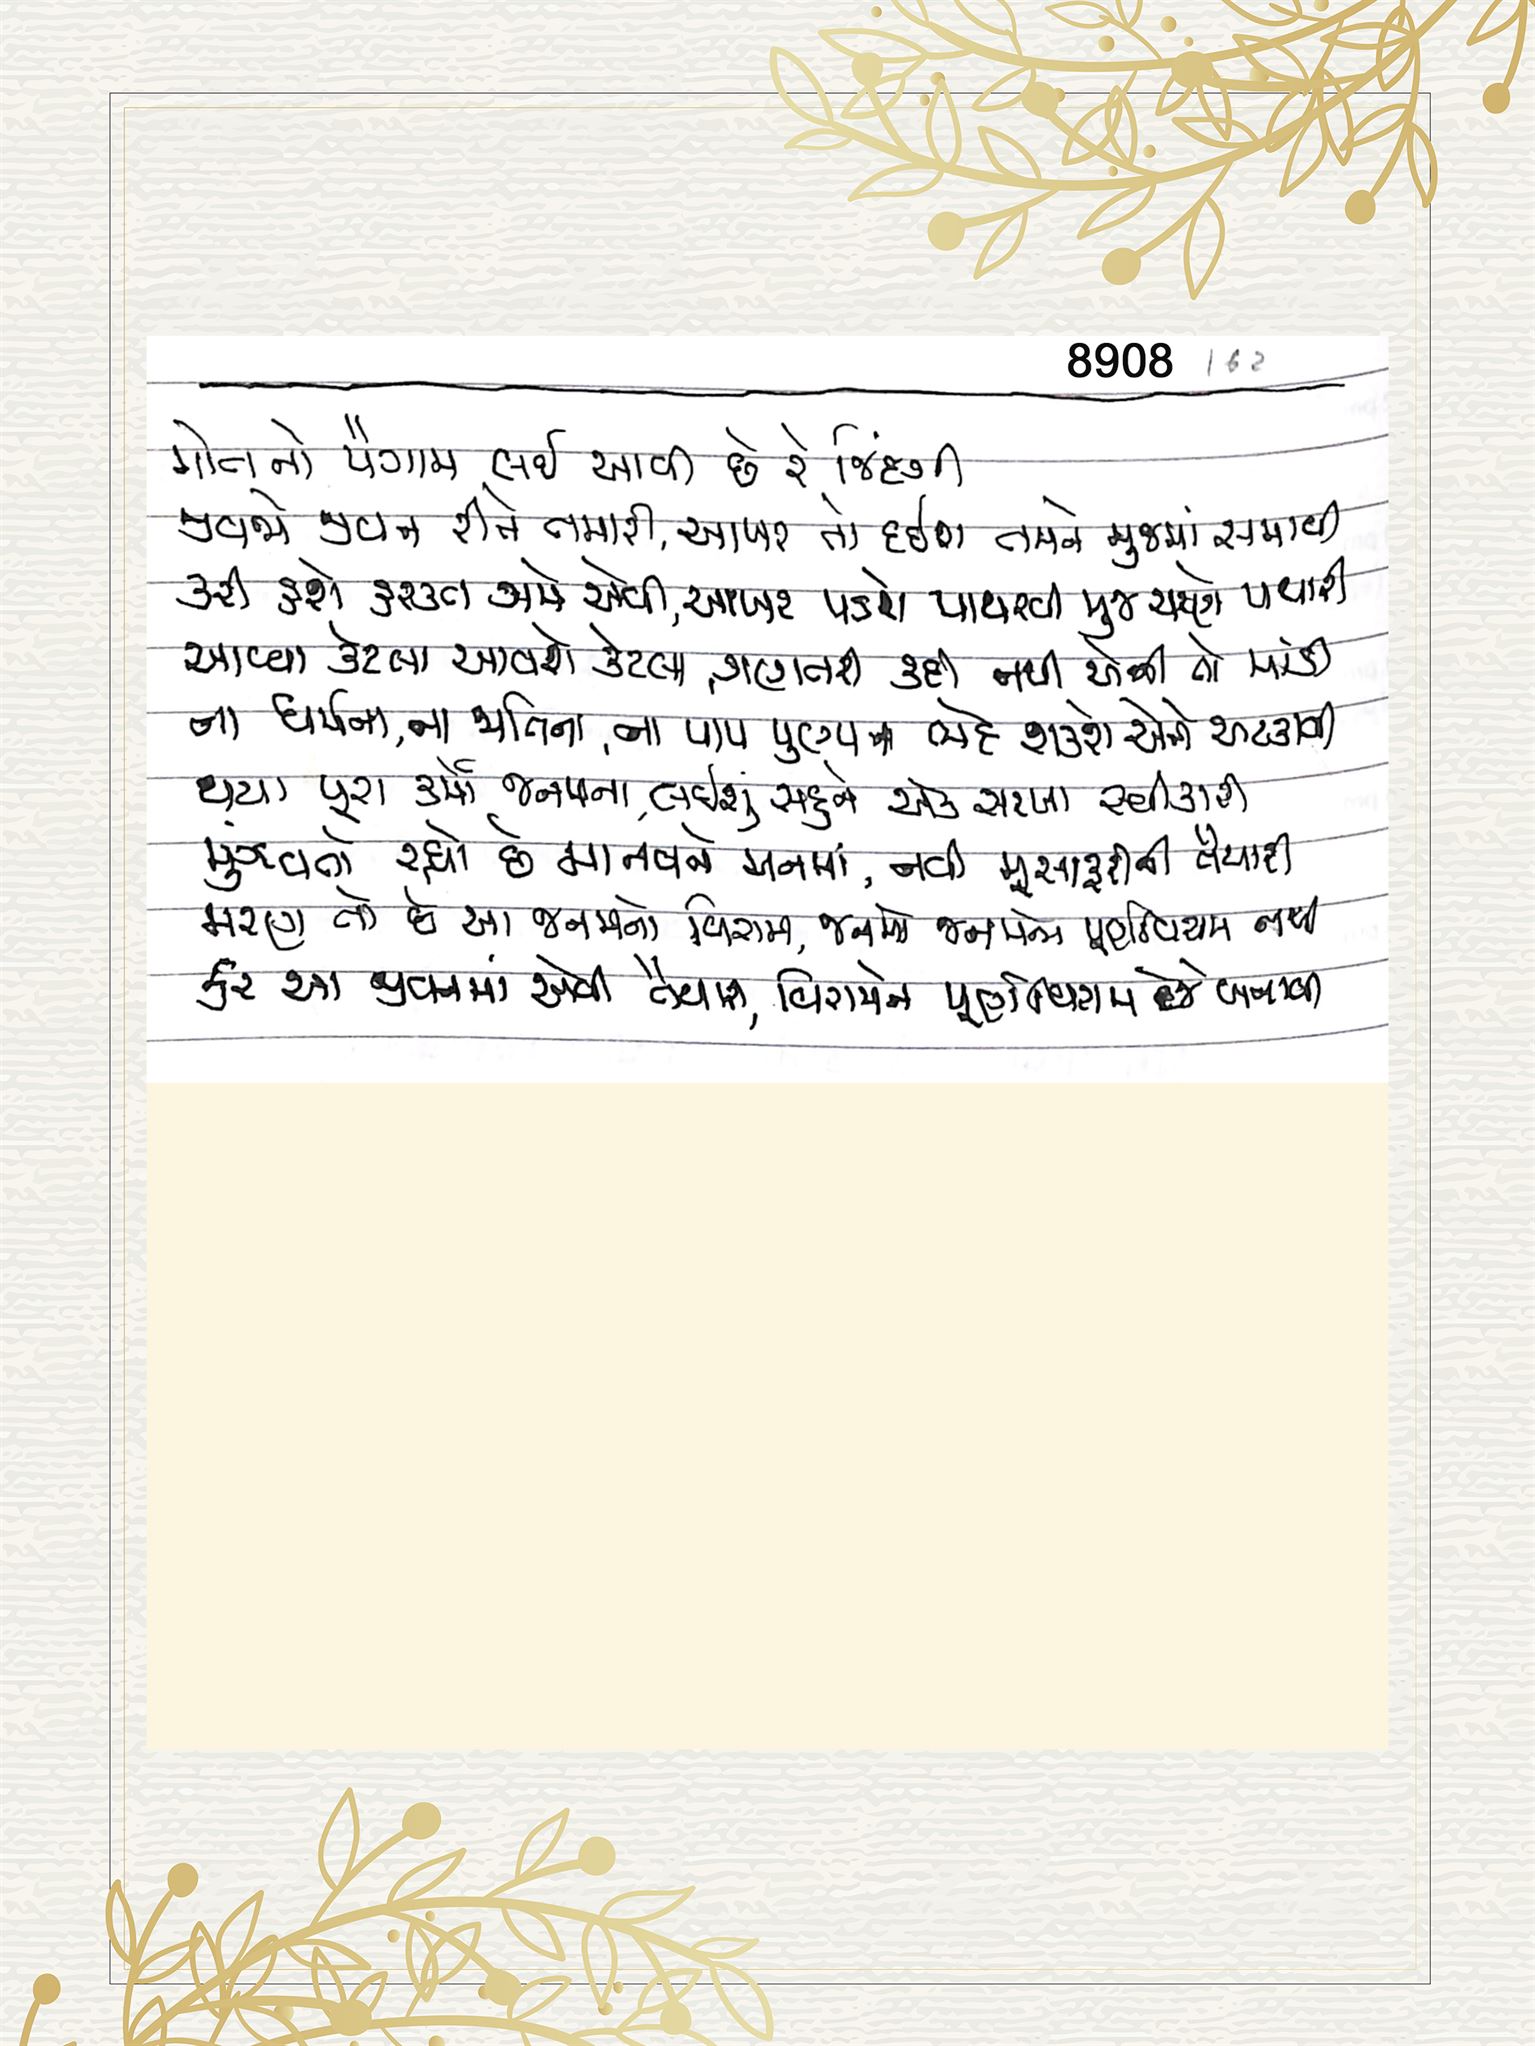 8908 162
મોતનો પૈગામ લઈ આવી છે રે જિંદગી
જીવજો જીવન રીતે તમારી, આખર તો દઈશ તમને મુજમાં સમાવી
કરી હશે હરકત અમે એવી, આખર પડશે પાથરવી મુજ ચરણે પથારી
આવ્યા કેટલા આવશે કેટલા, ગણતરી કદી નથી એની તો માંડી
ના ધર્મના, ના જાતિના, ના પાપ પુણ્યના ભેદ શકશે એને અટકાવી
થયા પૂરા કર્મો જનમના, લઈશું સહુને એક સરખા સ્વીકારી
મુંઝવતો રહ્યો છે માનવને મનમાં, નવી મુસાફરીની તૈયારી
મરણ તો છે આ જનમનો વિરામ, જનમો જનમનો પૂર્ણવિરામ નથી
કર આ જીવનમાં એવી તૈયારી, વિરામને પૂર્ણવિરામ દેજે બનાવી